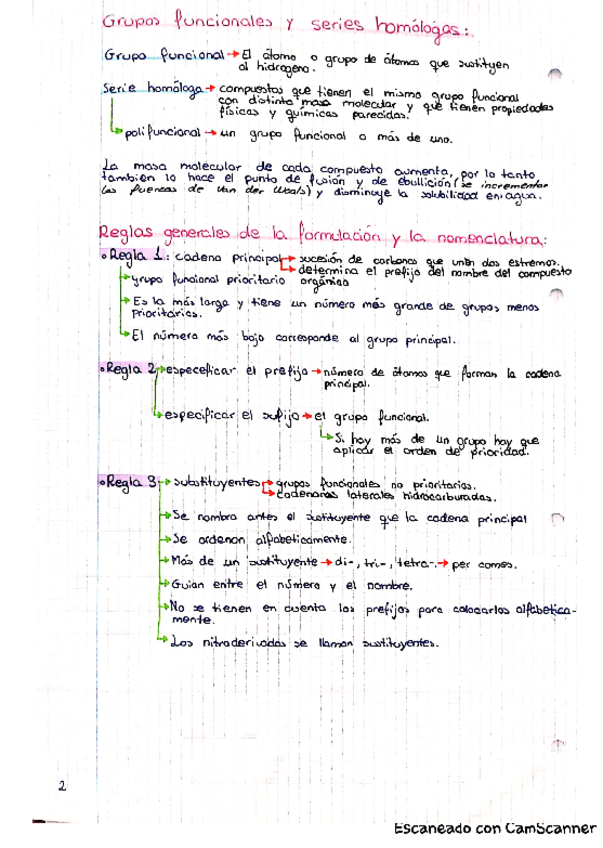 Grupos funcionales y series homólogas:
Grupo funcional → El átomo o grupo de átomos que sustituyen
al hidrogeno.
Serie homóloga → compuestos que tienen el mismo grupo funcional
con distinta masa molecular y que tienen propiedades
físicas y químicas parecidas.
polifuncional → un grupo funcional o más de uno.
La masa molecular de cada compuesto aumenta, por lo tanto
tambien lo hace el punto de fusión y de ebullición (se incrementar
las fuerzas de Van der Waals) y disminuye la solubilidad en agua.
Reglas generales de la formulación y la nomenclatura:
• Regla 1: cadena principal → sucesión de carbonos que unen dos estremos.
→ determina el prefijo del nombre del compuesto
orgánico
→ grupo funcional prioritario
→ Es la más larga y tiene un número más grande de grupos menos
prioritarios.
→ El número más bajo corresponde al grupo principal.
• Regla 2 → especeficar el prefijo → número de átomos que forman la cadena
principal.
→ especificar el sufijo → el grupo funcional.
→ Si hay más de un grupo hay que
aplicar el orden de prioridad.
• Regla 3 → substituyentes → grupos funcionales no prioritarios.
→ cadenas laterales hidrocarburadas.
→ Se nombra antes el sustituyente que la cadena principal
→ Se ordenan alfabeticamente.
→ Más de un sustituyente → di-, tri-, tetra-. → per comes.
→ Guian entre el número y el nombre.
→ No se tienen en cuenta los prefijos para colocarlos alfabetica-
mente.
→ Los nitroderivados se llaman sustituyentes.
2
Escaneado con CamScanner